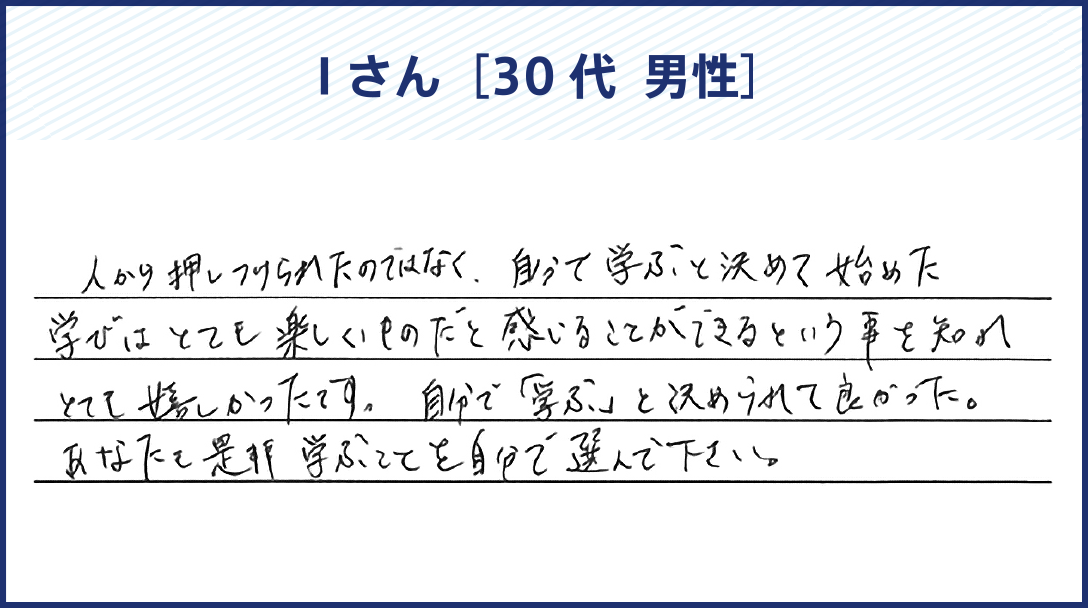 Iさん［30代 男性］
人から押しつけられたのではなく、自分で学ぶと決めて始めた
学びはとても楽しいものだと感じることができるという事を知れ
とても嬉しかったです。 自分で「学ぶ」と決められて良かった。
あなたも是非 学ぶことを自分で選んで下さい。